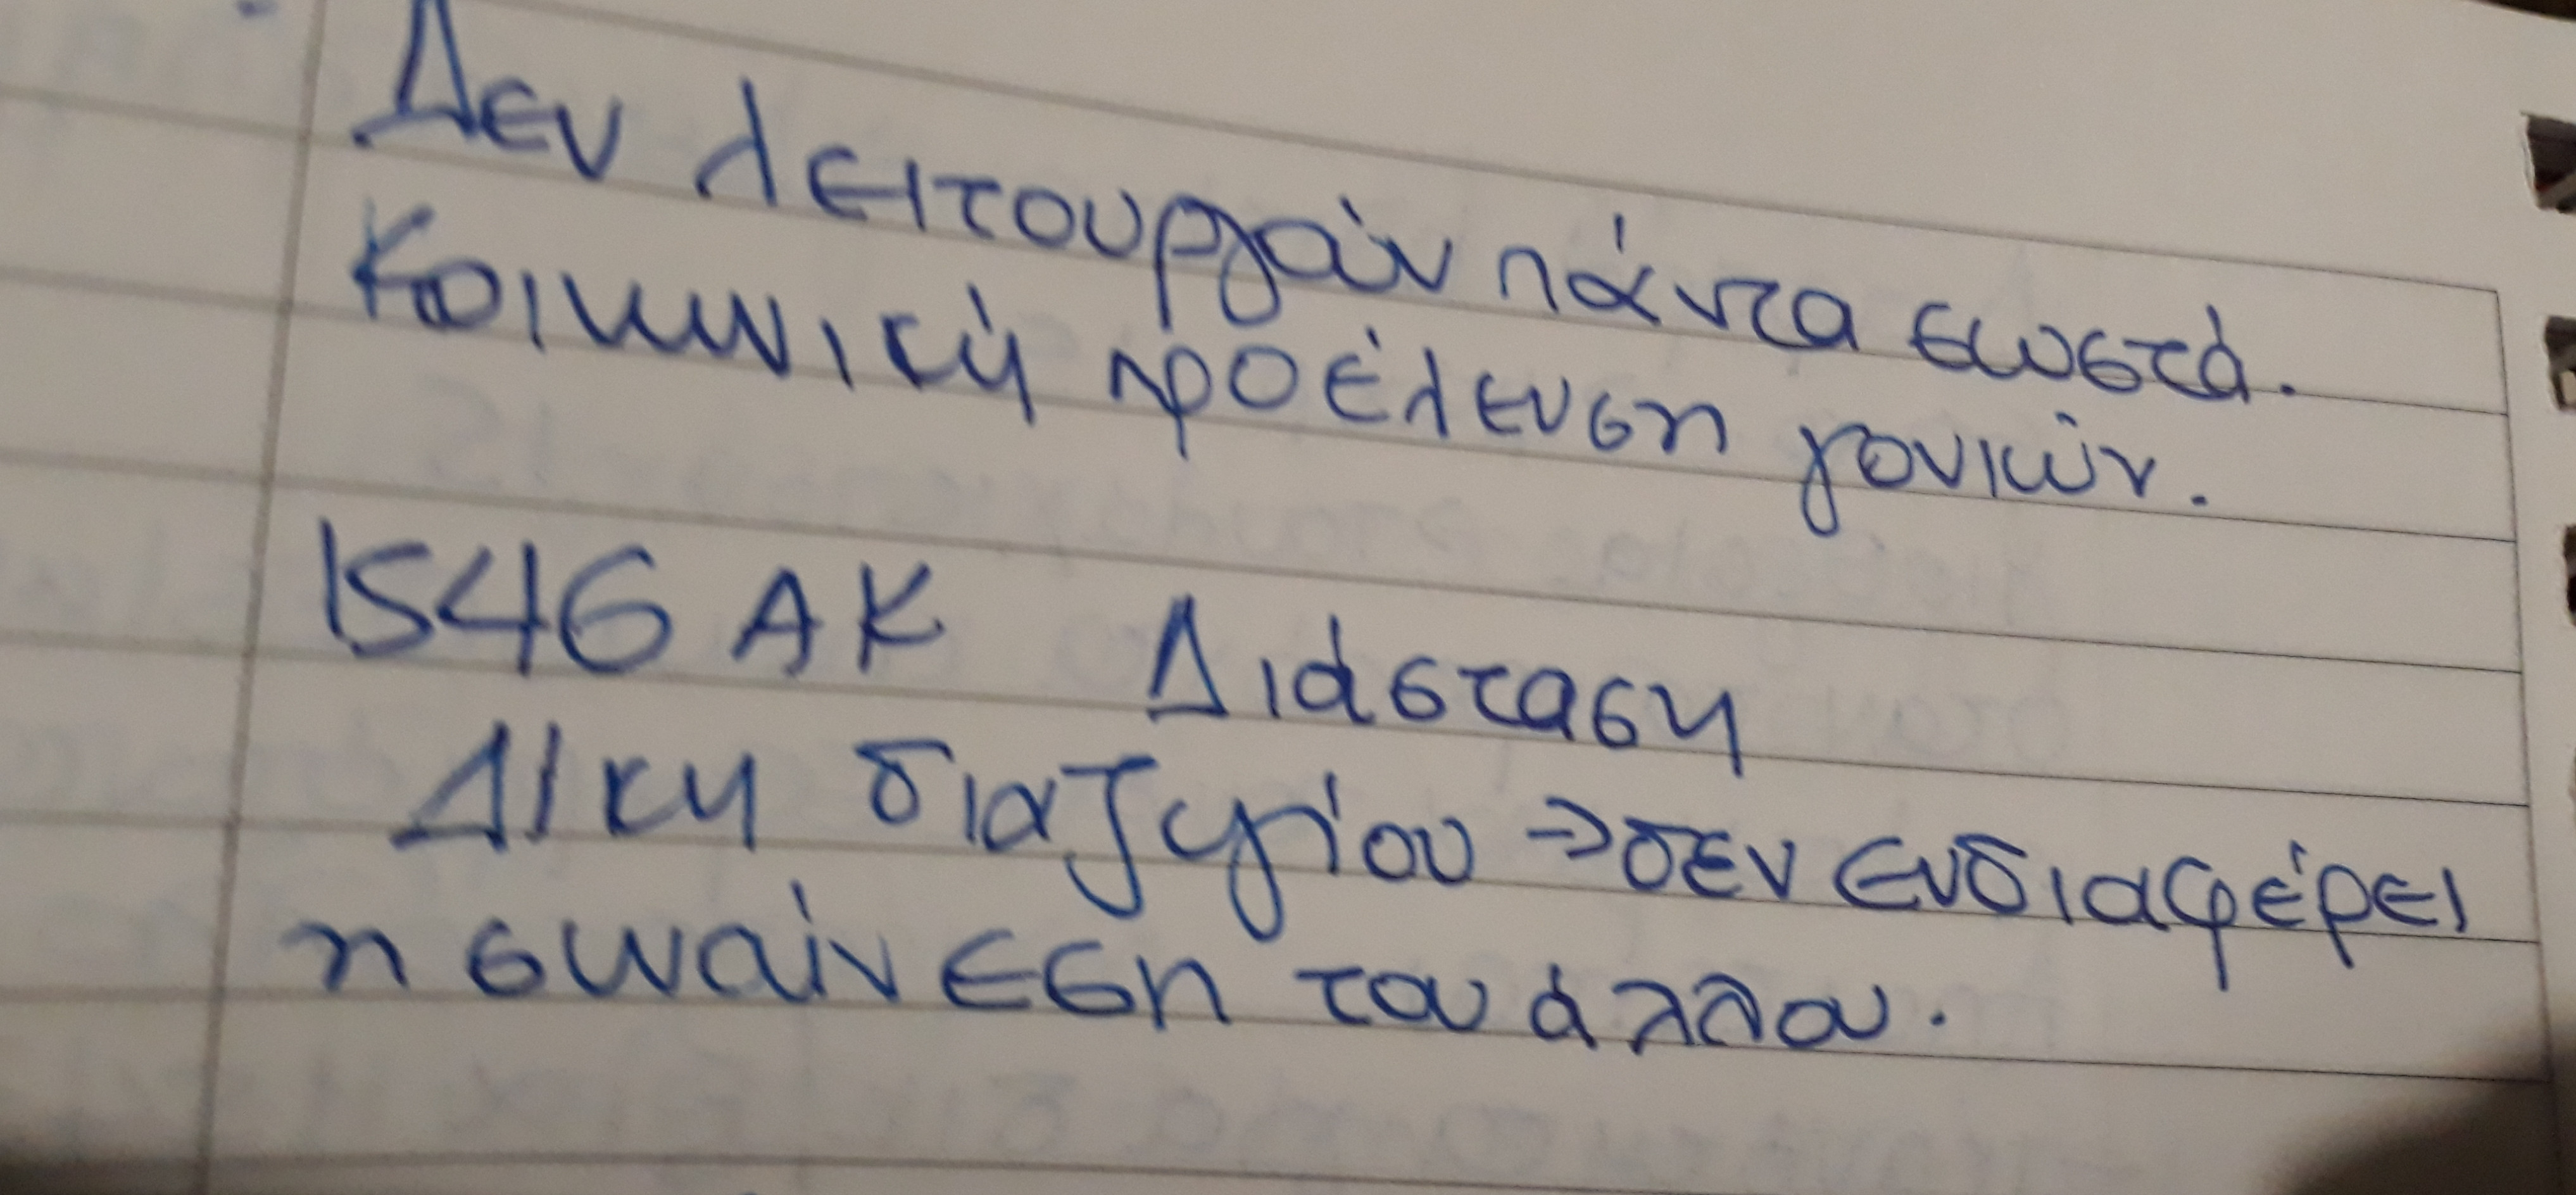 Δεν λειτουργούν πάντα σωστά.
Κοινωνική προέλευση γονιών.
1546 ΑΚ Διάσταση
Δίκη διαζυγίου → δεν ενδιαφέρει
η συναίνεση του άλλου.